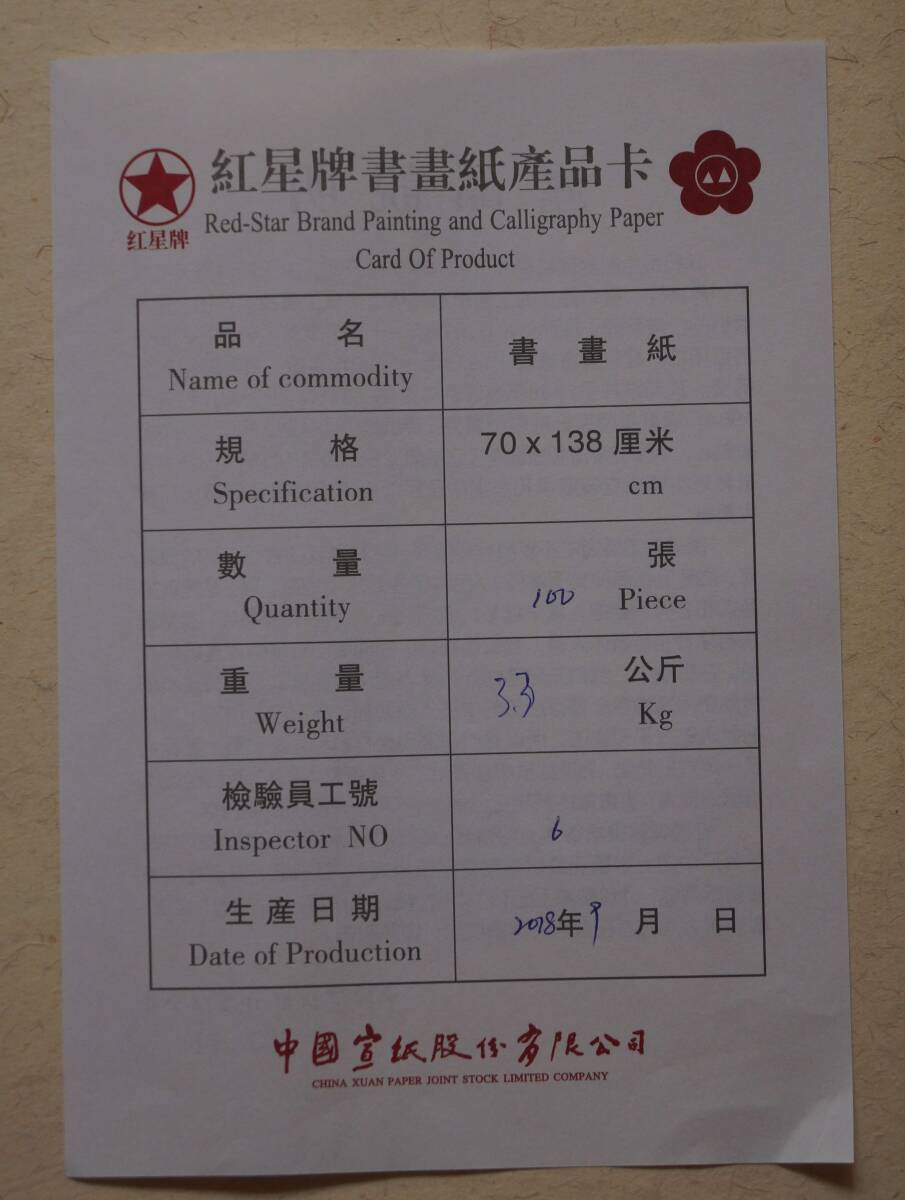 紅星牌書畫紙產品卡
红星牌
Red-Star Brand Painting and Calligraphy Paper
Card Of Product
品 名
Name of commodity
書 畫 紙
規 格
Specification
70 x 138 厘米
cm
數 量
Quantity
張
100 Piece
重 量
Weight
公斤
3.3 Kg
檢驗員工號
Inspector NO
6
生産日期
Date of Production
2018年9月 日
中國宣纸股份有限公司
CHINA XUAN PAPER JOINT STOCK LIMITED COMPANY